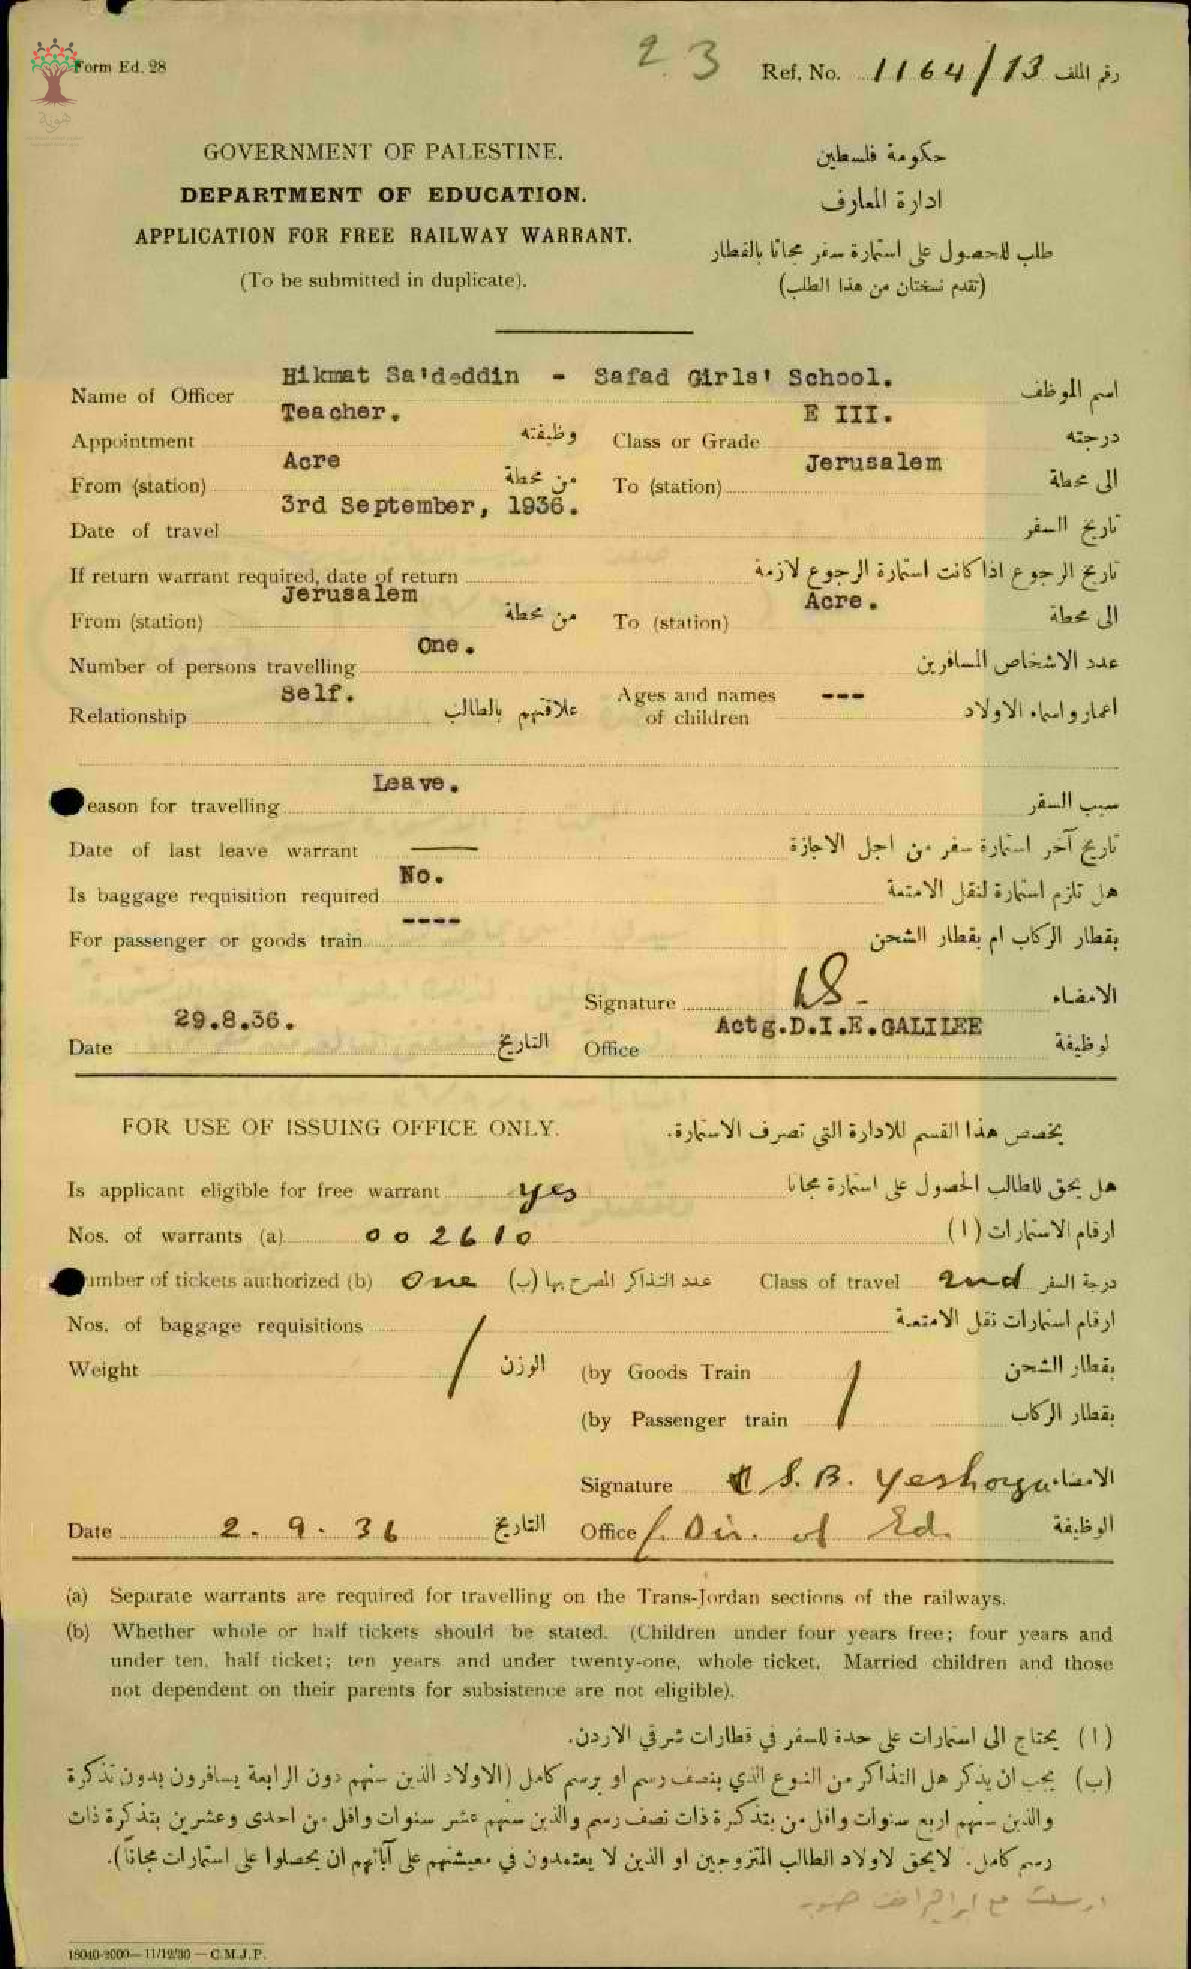 23
Form Ed. 28
Ref. No. 1164/13 رقم الملف
هوية
GOVERNMENT OF PALESTINE. حكومة فلسطين
DEPARTMENT OF EDUCATION. ادارة المعارف
APPLICATION FOR FREE RAILWAY WARRANT. طلب للحصول على استمارة سفر مجانا بالقطار
(To be submitted in duplicate). (تقدم نسختان من هذا الطلب)
Name of Officer Hikmat Sa'deddin - Safad Girls' School. اسم الموظف
Appointment Teacher. وظيفته Class or Grade E III. درجته
From (station) Acre من محطة To (station) Jerusalem الى محطة
Date of travel 3rd September, 1936. تاريخ السفر
If return warrant required, date of return تاريخ الرجوع اذا كانت استمارة الرجوع لازمة
From (station) Jerusalem من محطة To (station) Acre. الى محطة
Number of persons travelling One. عدد الاشخاص المسافرين
Relationship Self. علاقتهم بالطالب Ages and names of children --- اعمار واسماء الاولاد
eason for travelling Leave. سبب السفر
Date of last leave warrant — تاريخ آخر استمارة سفر من اجل الاجازة
Is baggage requisition required No. هل تلزم استمارة لنقل الامتعة
For passenger or goods train ---- بقطار الركاب ام بقطار الشحن
Signature الامضاء
Date 29.8.36. التاريخ Office Actg.D.I.E.GALILEE لوظيفة
FOR USE OF ISSUING OFFICE ONLY. يخصص هذا القسم للادارة التي تصرف الاستمارة.
Is applicant eligible for free warrant yes هل يحق للطالب الحصول على استمارة مجانا
Nos. of warrants (a) 002610 ارقام الاستمارات (ا)
umber of tickets authorized (b) One عدد التذاكر المصرح بها (ب) Class of travel 2nd درجة السفر
Nos. of baggage requisitions ارقام استمارات نقل الامتعة
Weight الوزن (by Goods Train بقطار الشحن
(by Passenger train بقطار الركاب
Signature S. B. Yeshaya الامضاء
Date 2.9.36 التاريخ Office f. Dir. of Ed. الوظيفة
(a) Separate warrants are required for travelling on the Trans-Jordan sections of the railways.
(b) Whether whole or half tickets should be stated. (Children under four years free; four years and
under ten, half ticket; ten years and under twenty-one, whole ticket. Married children and those
not dependent on their parents for subsistence are not eligible).
(ا) يحتاج الى استمارات على حدة للسفر في قطارات شرقي الاردن.
(ب) يجب ان يذكر هل التذاكر من النوع الذي بنصف رسم او برسم كامل (الاولاد الذين سنهم دون الرابعة يسافرون بدون تذكرة
والذين سنهم اربع سنوات واقل من بتذكرة ذات نصف رسم والذين سنهم عشر سنوات واقل من احدى وعشرين بتذكرة ذات
رسم كامل. لا يحق لاولاد الطالب المتزوجين او الذين لا يعتمدون في معيشتهم على آبائهم ان يحصلوا على استمارات مجانا).
ارسلت مع ابراهيم
18040-2000—11/12/30 — C.M.J.P.